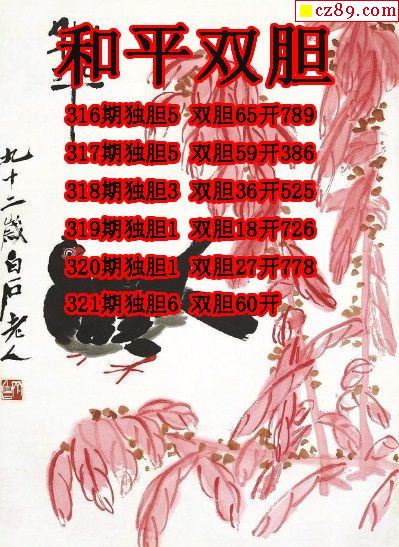 cz89.com
和平双胆
316期独胆5 双胆65开789
317期独胆5 双胆59开386
318期独胆3 双胆36开525
319期独胆1 双胆18开726
320期独胆1 双胆27开778
321期独胆6 双胆60开
九十二岁白石老人